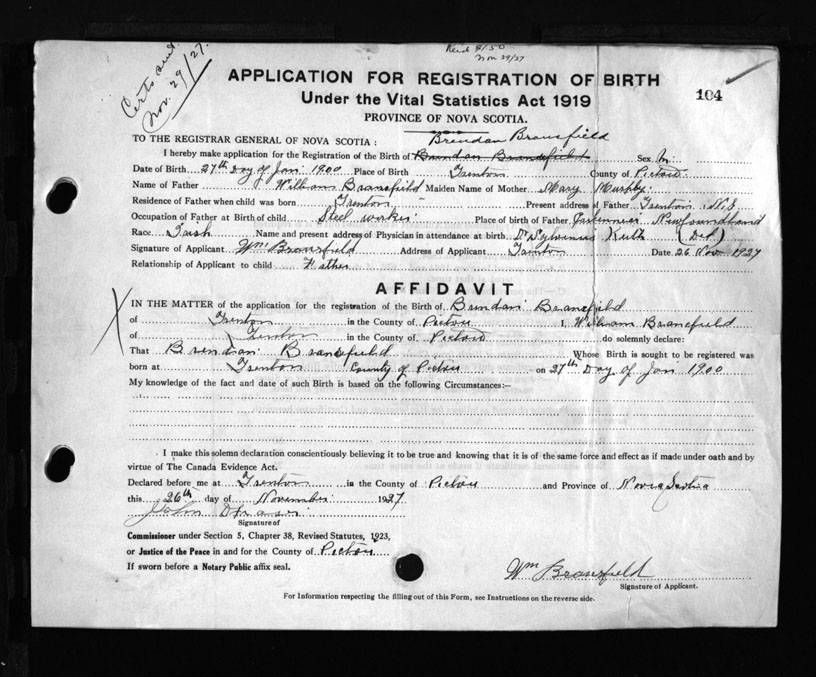 Certs sent
Nov. 29/27.
Recd $1.50
Nov 29/27
APPLICATION FOR REGISTRATION OF BIRTH
Under the Vital Statistics Act 1919
104
PROVINCE OF NOVA SCOTIA.
TO THE REGISTRAR GENERAL OF NOVA SCOTIA: Brendan Bransfield
I hereby make application for the Registration of the Birth of Sex M.
Date of Birth 27th Day of Jan 1900 Place of Birth Trenton County of Pictou
Name of Father William Bransfield Maiden Name of Mother Mary Murphy
Residence of Father when child was born Trenton Present address of Father Trenton N.S
Occupation of Father at Birth of child Steel worker Place of birth of Father Newfoundland
Race Irish Name and present address of Physician in attendance at birth Dr Sylvanus Keith (Dcd)
Signature of Applicant Wm Bransfield Address of Applicant Trenton Date 26 Nov 1927
Relationship of Applicant to child Father
AFFIDAVIT
X
IN THE MATTER of the application for the registration of the Birth of Brendan Bransfield
of Trenton in the County of Pictou I, William Bransfield
of Trenton in the County of Pictou do solemnly declare:
That Brendan Bransfield Whose Birth is sought to be registered was
born at Trenton County of Pictou on 27th Day of Jan 1900
My knowledge of the fact and date of such Birth is based on the following Circumstances:—
I make this solemn declaration conscientiously believing it to be true and knowing that it is of the same force and effect as if made under oath and by
virtue of The Canada Evidence Act.
Declared before me at Trenton in the County of Pictou and Province of Nova Scotia
this 26th day of November 1927
John
Signature of
Commissioner under Section 5, Chapter 38, Revised Statutes, 1923,
or Justice of the Peace in and for the County of Pictou
If sworn before a Notary Public affix seal.
Wm Bransfield
Signature of Applicant.
For Information respecting the filling out of this Form, see Instructions on the reverse side.